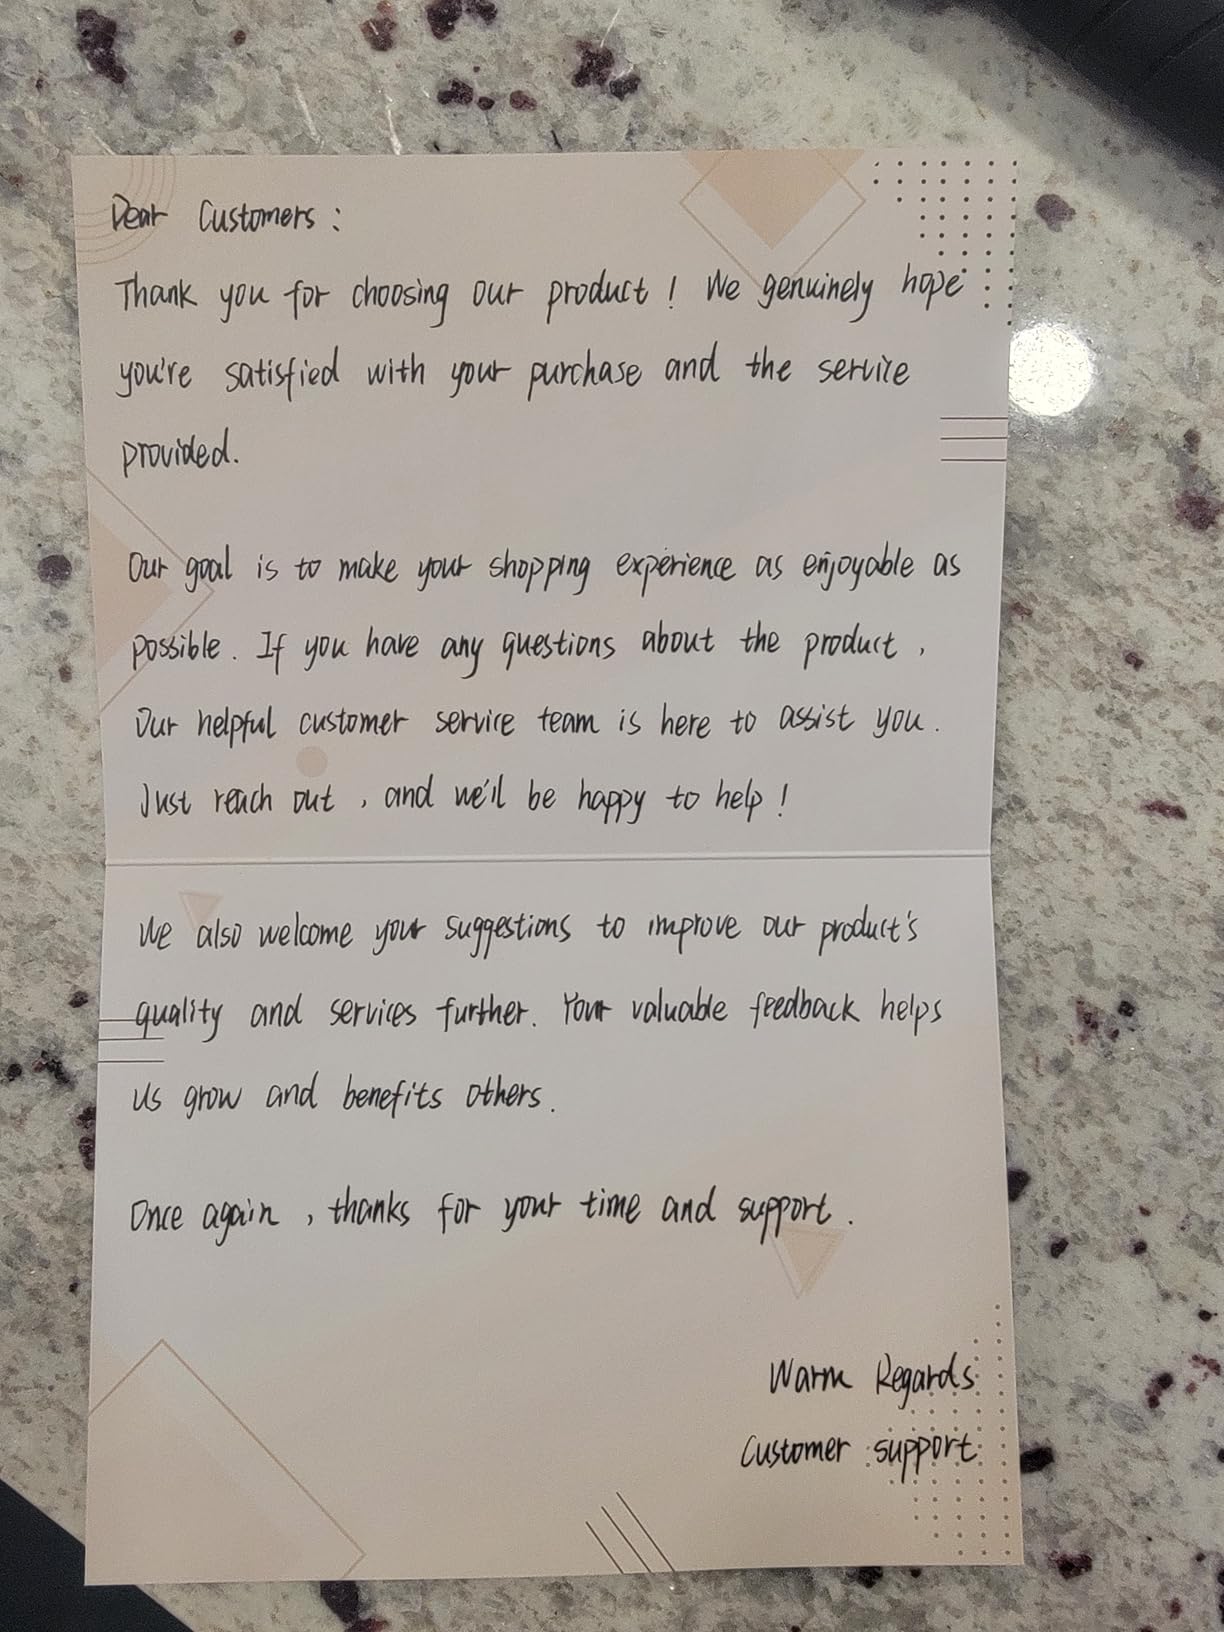 Dear Customers :
Thank you for choosing our product ! We genuinely hope
you're satisfied with your purchase and the service
provided.
Our goal is to make your shopping experience as enjoyable as
possible. If you have any questions about the product ,
Our helpful customer service team is here to assist you.
Just reach out , and we'll be happy to help !
We also welcome your suggestions to improve our product's
quality and services further. Your valuable feedback helps
us grow and benefits others.
Once again , thanks for your time and support .
Warm Regards
Customer support